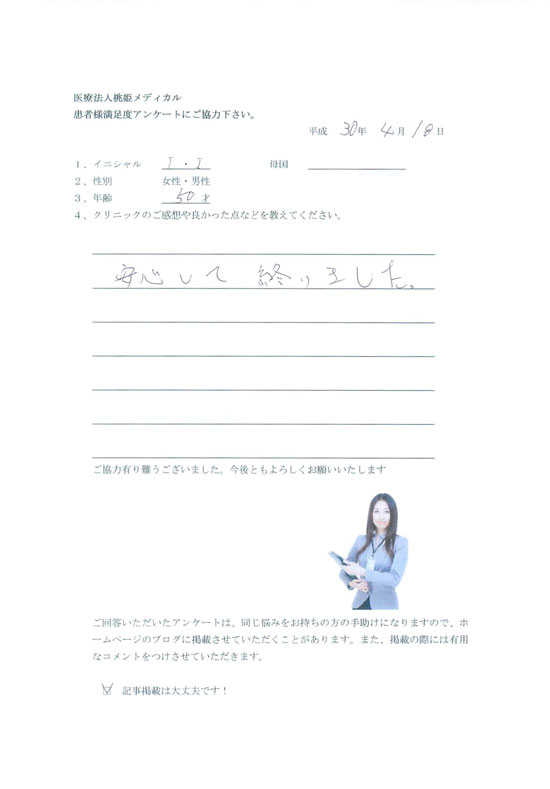 医療法人桃姫メディカル
患者様満足度アンケートにご協力下さい。
平成 30年 4月18日
1、イニシャル I・I 母国
2、性別 女性・男性
3、年齢 50才
4、クリニックのご感想や良かった点などを教えてください。
安心して 終りました。
ご協力有り難うございました。今後ともよろしくお願いいたします
ご回答いただいたアンケートは、同じ悩みをお持ちの方の手助けになりますので、ホ
ームページのブログに掲載させていただくことがあります。また、掲載の際には有用
なコメントをつけさせていただきます。
☑ 記事掲載は大丈夫です！